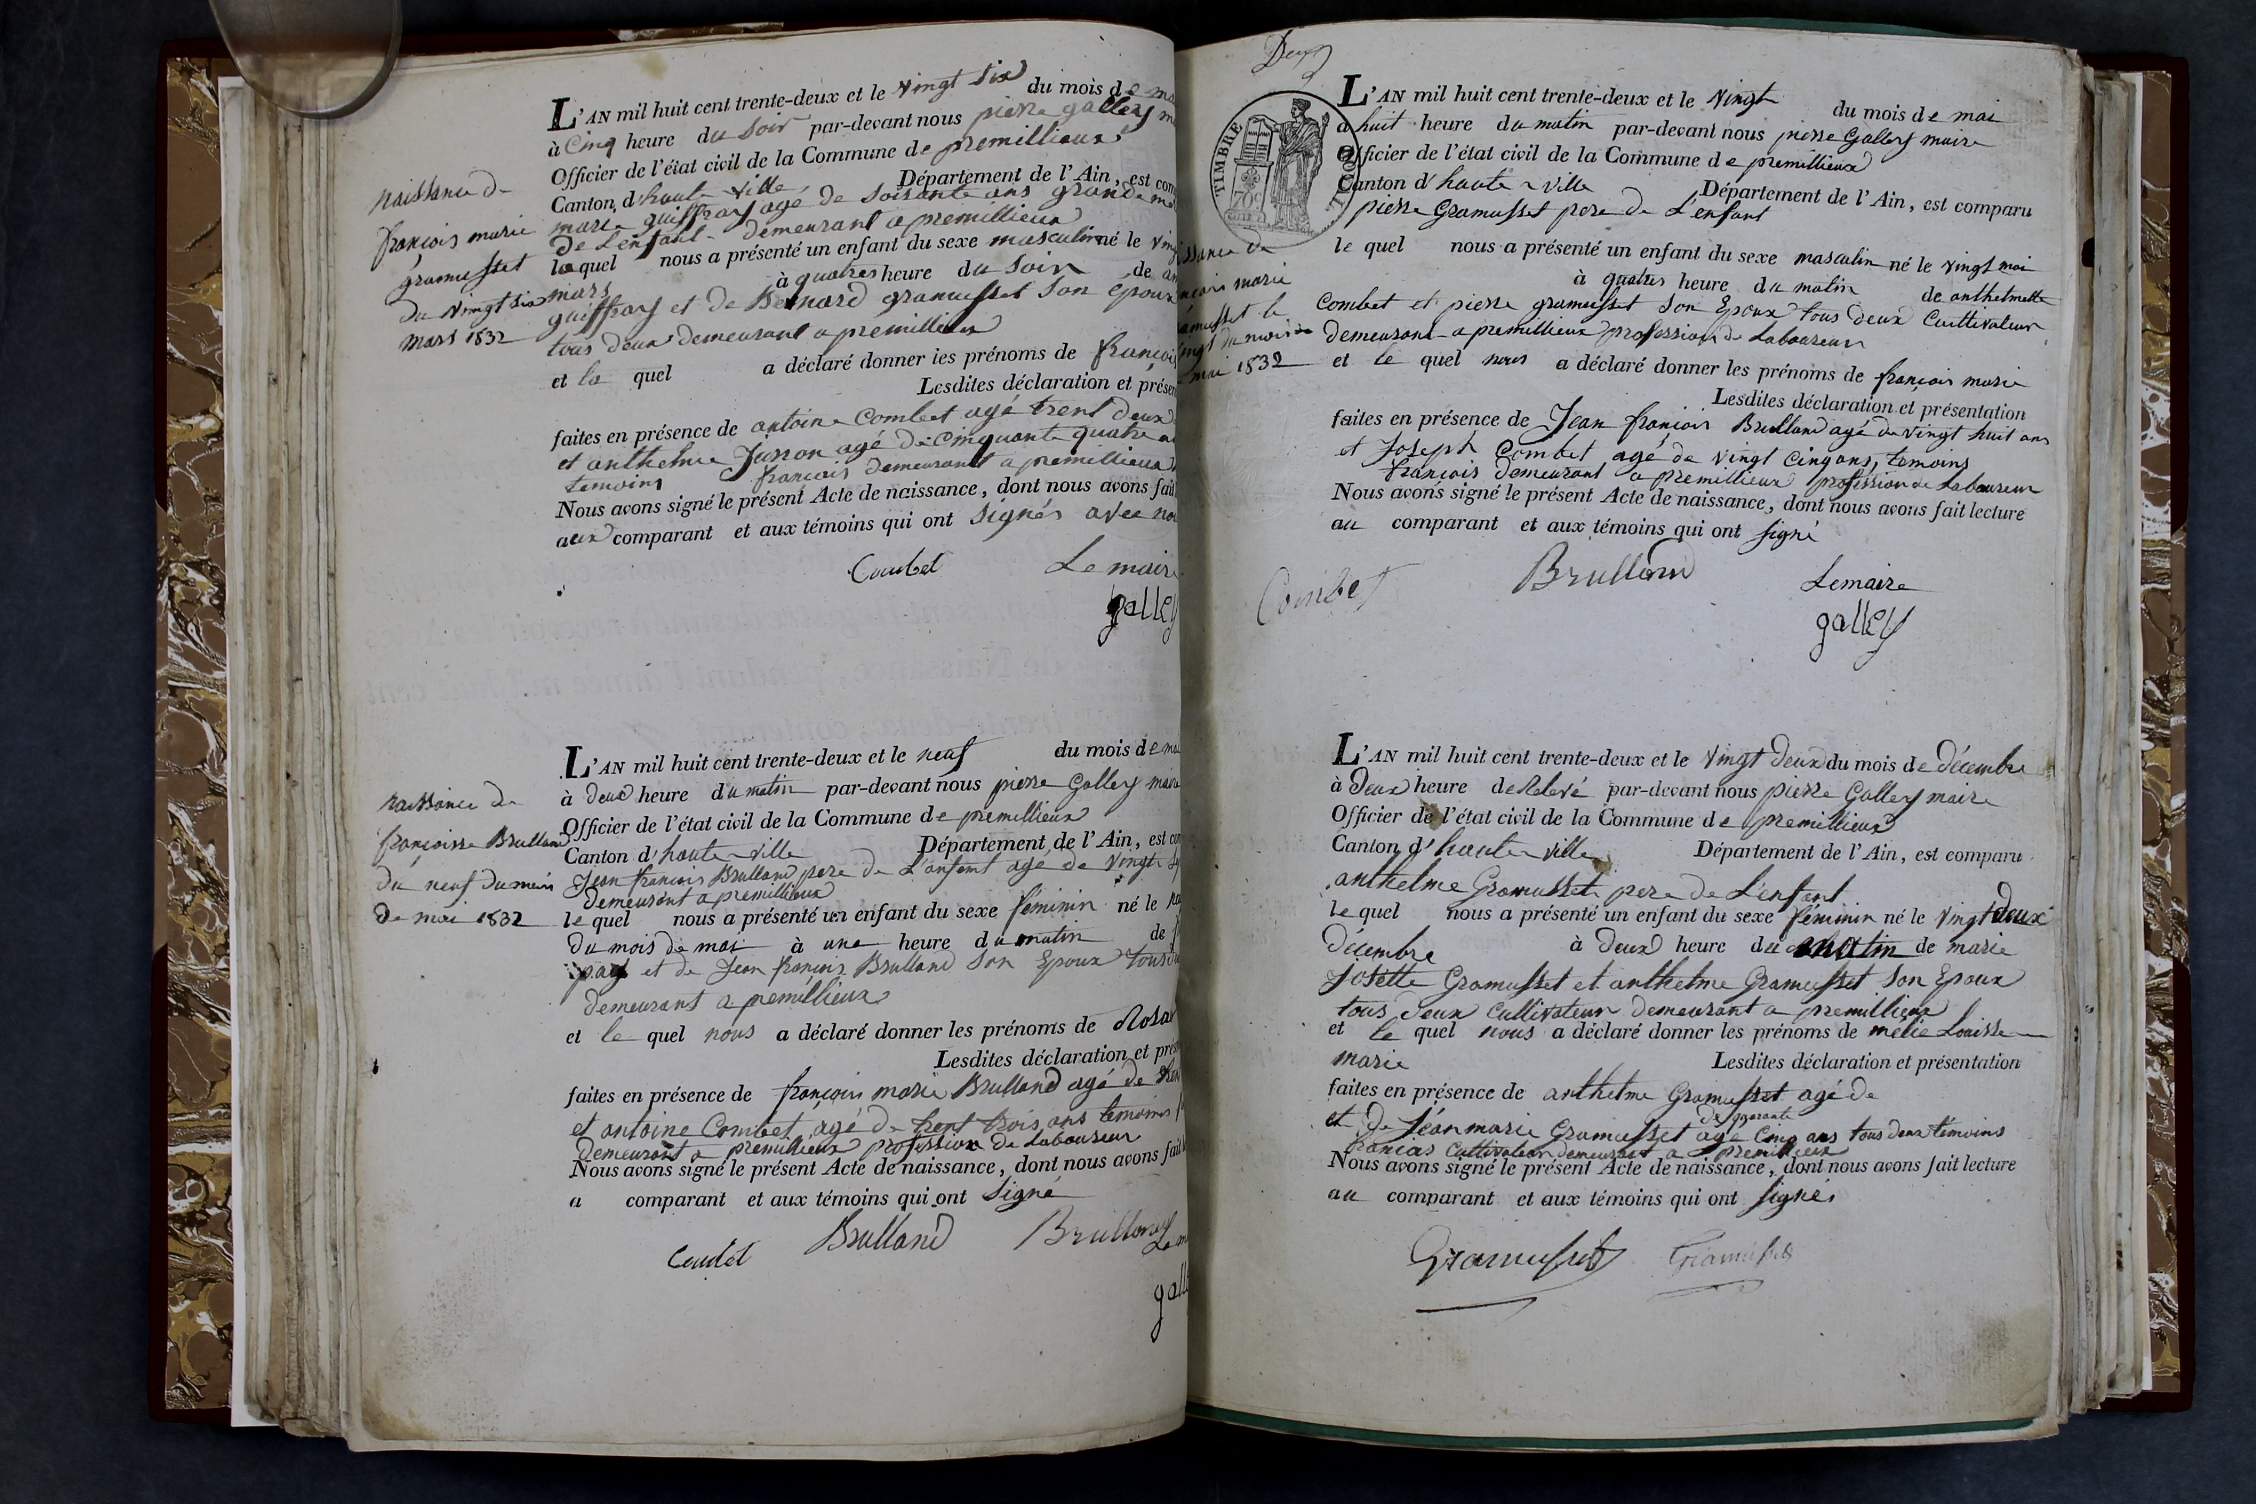 naissance de
françois marie
gramusset
du vingt six
mars 1832
L'AN mil huit cent trente-deux et le vingt six du mois de
à Cinq heure du Soir par-devant nous pierre galley
Officier de l'état civil de la Commune de premillieux
Canton d'haute ville Département de l'Ain, est
marie guiffray agé de Soixante ans grande
de L'enfant demeurant a premillieux
laquel nous a présenté un enfant du sexe masculin né le
mars à quatres heure du Soir de
guiffray et de Bernard gramusset Son epoux
tous deux demeurant a premillieux
et la quel a déclaré donner les prénoms de
Lesdites déclaration et
faites en présence de antoine Combet agé trent deux
et anthelme Juron agé de Cinquante quatre
temoins français demeurant a premillieux
Nous avons signé le présent Acte de naissance, dont nous avons
aux comparant et aux témoins qui ont Signés avec
Combet Le maire
galley
naissance de
françoisse Brulland
du neuf du mois
de mai 1832
L'AN mil huit cent trente-deux et le neuf du mois de
à deux heure du matin par-devant nous pierre Galley maire
Officier de l'état civil de la Commune de premillieux
Canton d'haute ville Département de l'Ain, est
Jean françois Brulland pere de L'enfant agé de vingt
demeurant a premillieux
le quel nous a présenté un enfant du sexe féminin né le
du mois de mai à une heure du matin de
et de Jean françois Brulland Son Epoux tous
demeurant a premillieux
et le quel nous a déclaré donner les prénoms de
Lesdites déclaration et
faites en présence de françois marie Brulland agé de
et antoine Combet agé de trent trois ans temoins
demeurant a premillieux profession de Laboureur
Nous avons signé le présent Acte de naissance, dont nous avons
a comparant et aux témoins qui ont Signé
Brulland
TIMBRE
70c
marie
mai 1832
L'AN mil huit cent trente-deux et le vingt du mois de mai
à huit heure du matin par-devant nous pierre Galley maire
Officier de l'état civil de la Commune de premillieux
Canton d'haute ville Département de l'Ain, est comparu
pierre Gramusset pere de L'enfant
le quel nous a présenté un enfant du sexe masculin né le vingt mai
à quatres heure du matin de anthelmette
Combet et pierre gramusset Son Epoux tous deux Cultivateur
demeurant a premillieux profession de Laboureur
et le quel nous a déclaré donner les prénoms de françois marie
Lesdites déclaration et présentation
faites en présence de Jean françois Brulland agé de vingt huit ans
et Joseph Combet agé de vingt Cinq ans, temoins
français demeurant a premillieux profession de Laboureur
Nous avons signé le présent Acte de naissance, dont nous avons fait lecture
au comparant et aux témoins qui ont signé
Combet Brulland Lemaire
galley
L'AN mil huit cent trente-deux et le vingt deux du mois de décembre
à deux heure de Relevé par-devant nous pierre Galley maire
Officier de l'état civil de la Commune de premillieux
Canton d'haute ville Département de l'Ain, est comparu
anthelme Gramusset pere de L'enfant
le quel nous a présenté un enfant du sexe féminin né le vingt deux
décembre à deux heure du matin de marie
Josette Gramusset et anthelme Gramusset Son Epoux
tous deux Cultivateur demeurant a premillieux
et le quel nous a déclaré donner les prénoms de melie Louisse
marie Lesdites déclaration et présentation
faites en présence de anthelme Gramusset agé de
et de Jéan marie Gramusset agé de quarante Cinq ans tous deux témoins
francais Cultivateur demeurant a premillieux
Nous avons signé le présent Acte de naissance, dont nous avons fait lecture
au comparant et aux témoins qui ont signés
Gramusset Gramusset